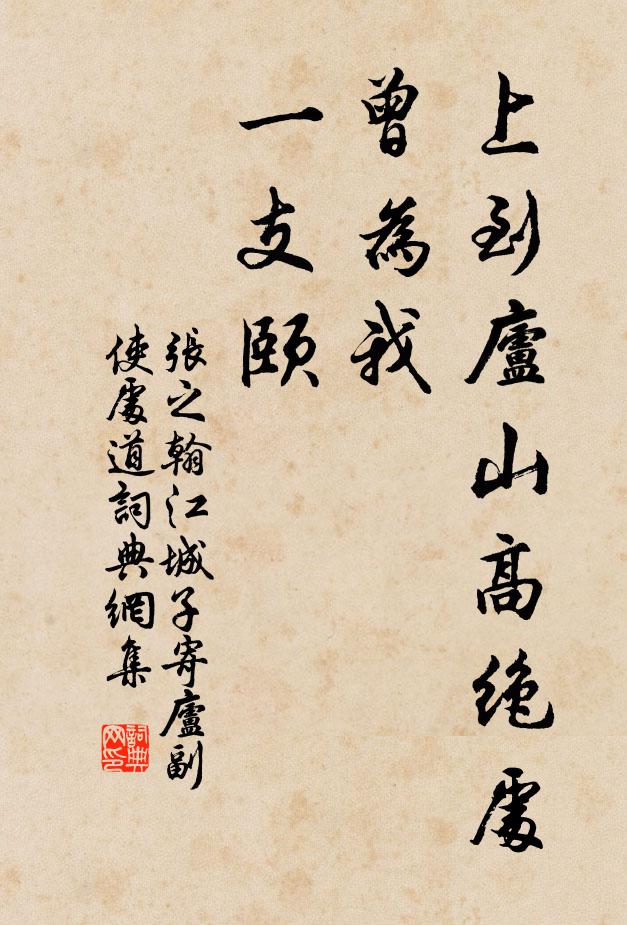 上到廬山高絶處
曾為我
一支頤
張之翰江城子寄廬副
使處道詞典網集
詞典
网印